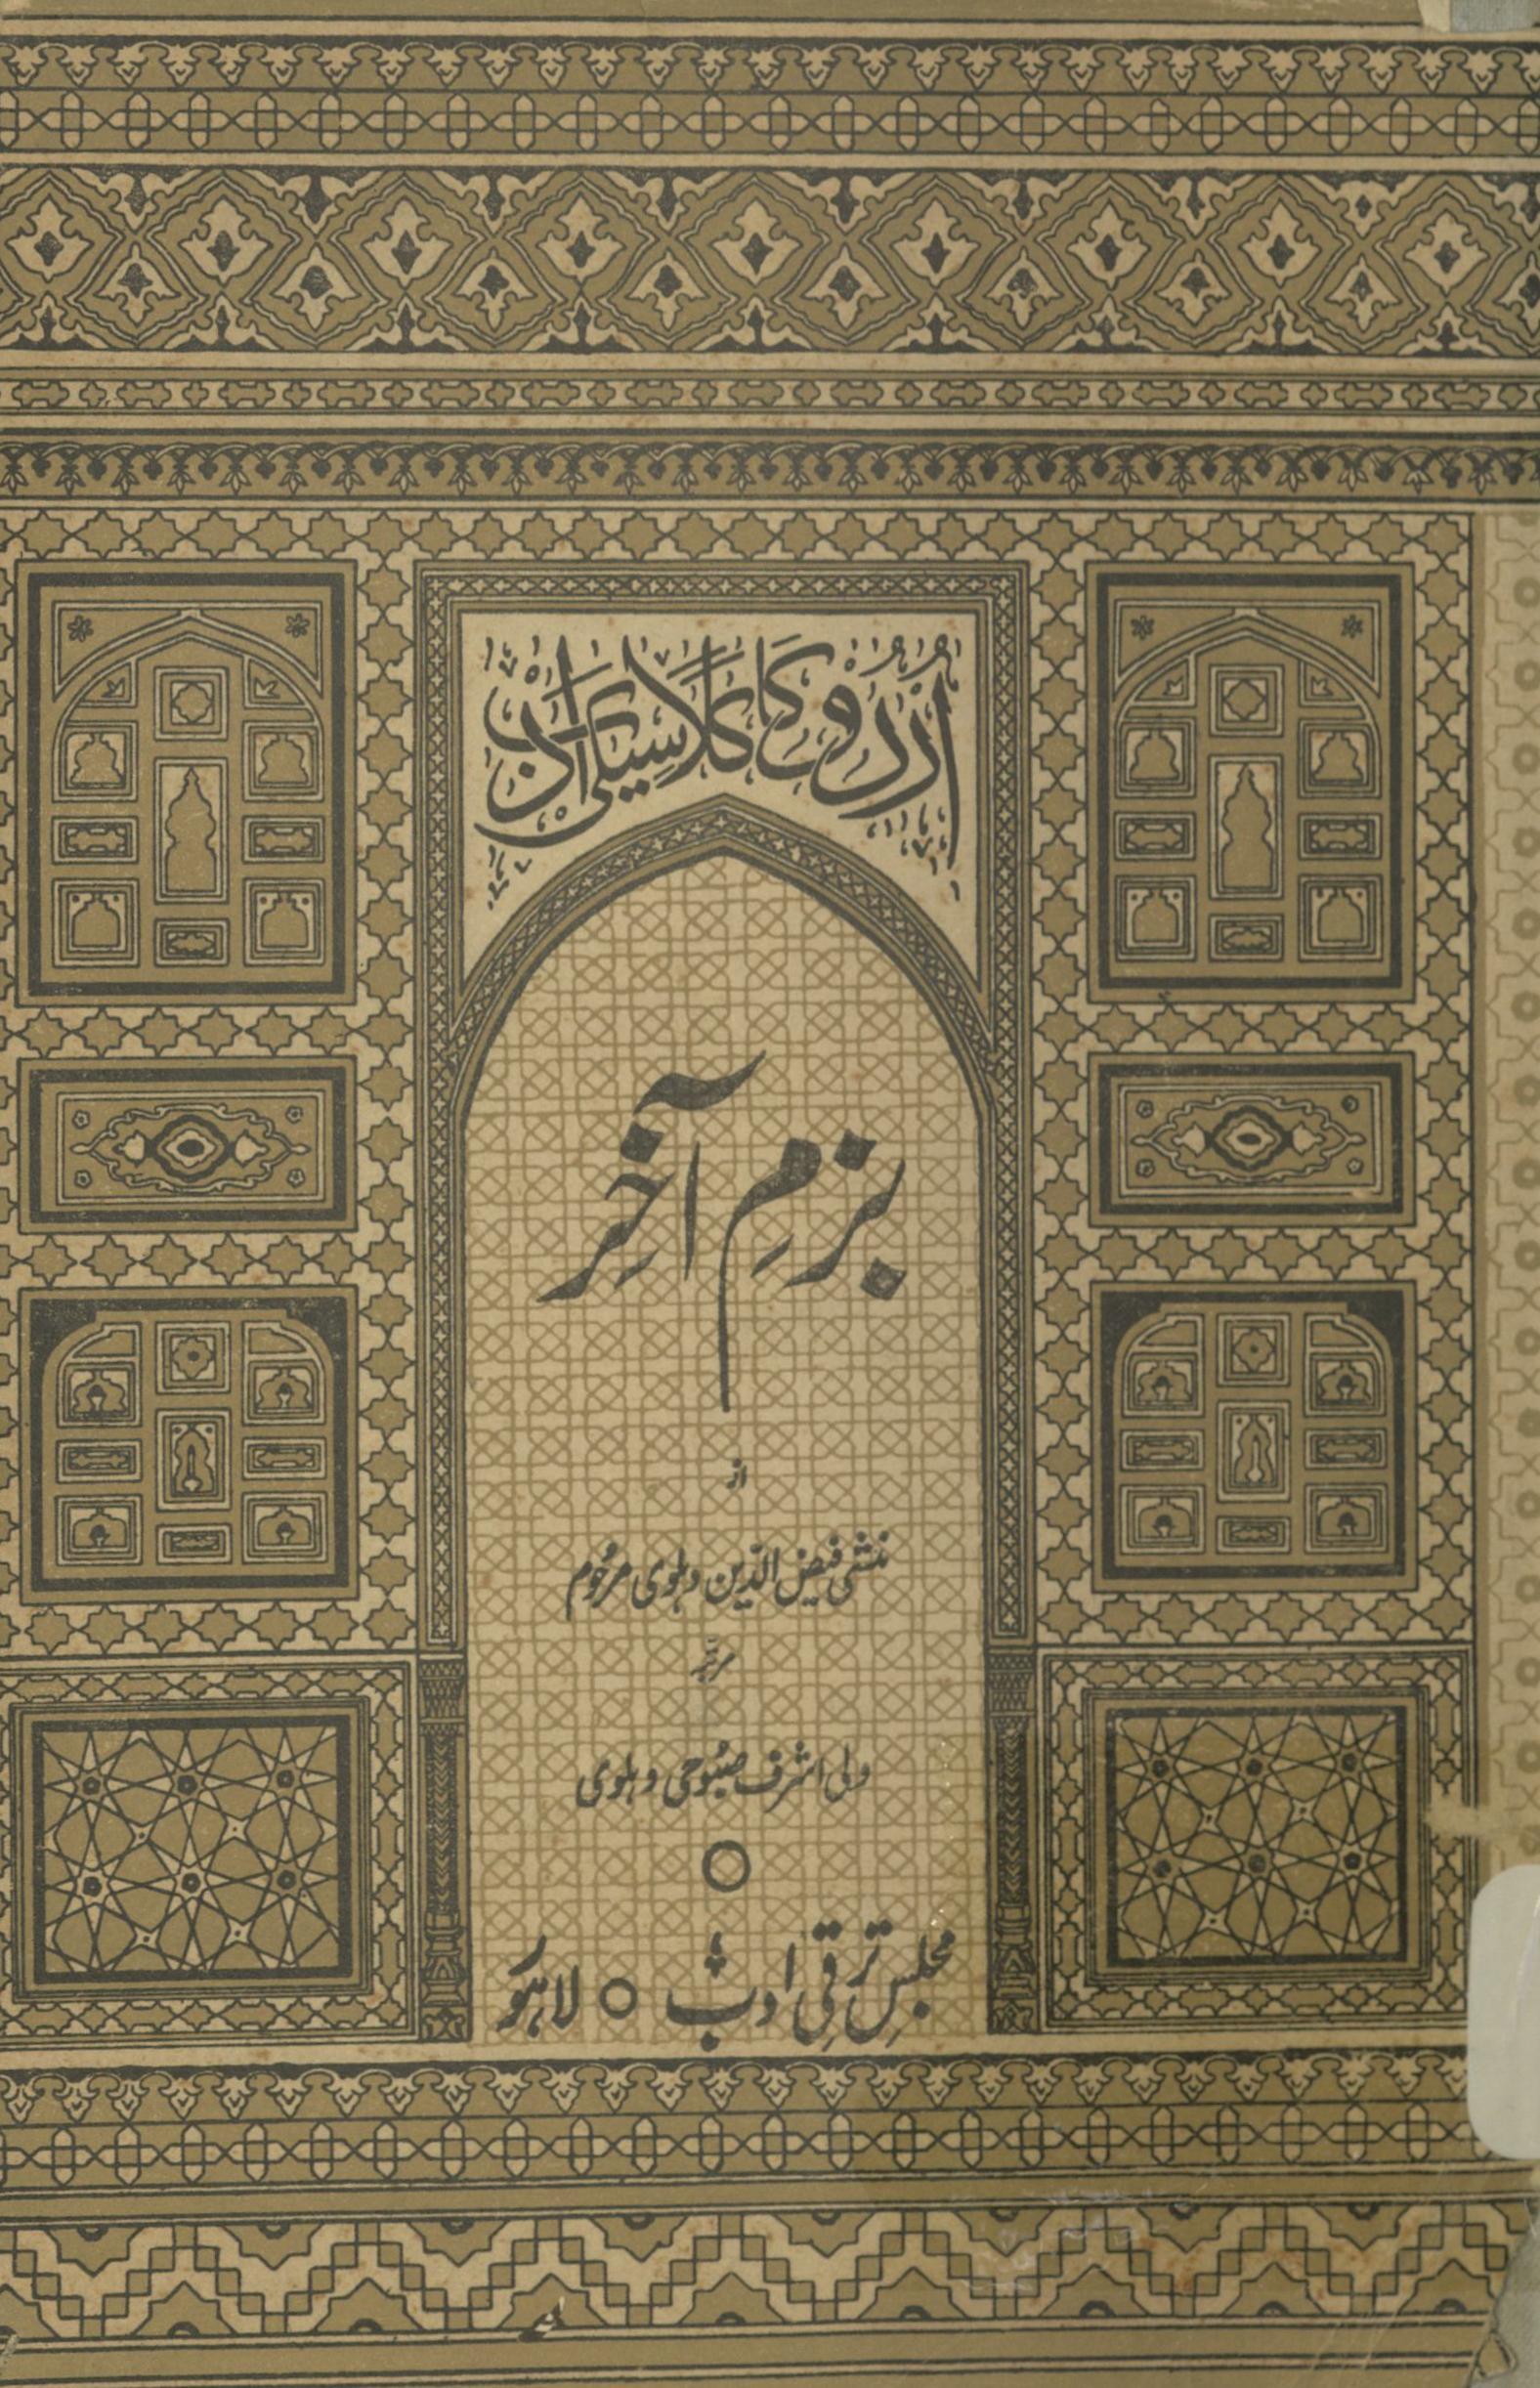 اُردو کا کلاسیکی ادب
بزمِ آخر
از
منشی فیض الدّین دہلوی مرحُوم
مرتّبہ
ولی اشرف صبُوحی دہلوی
مجلسِ ترقیِ ادب ○ لاہور